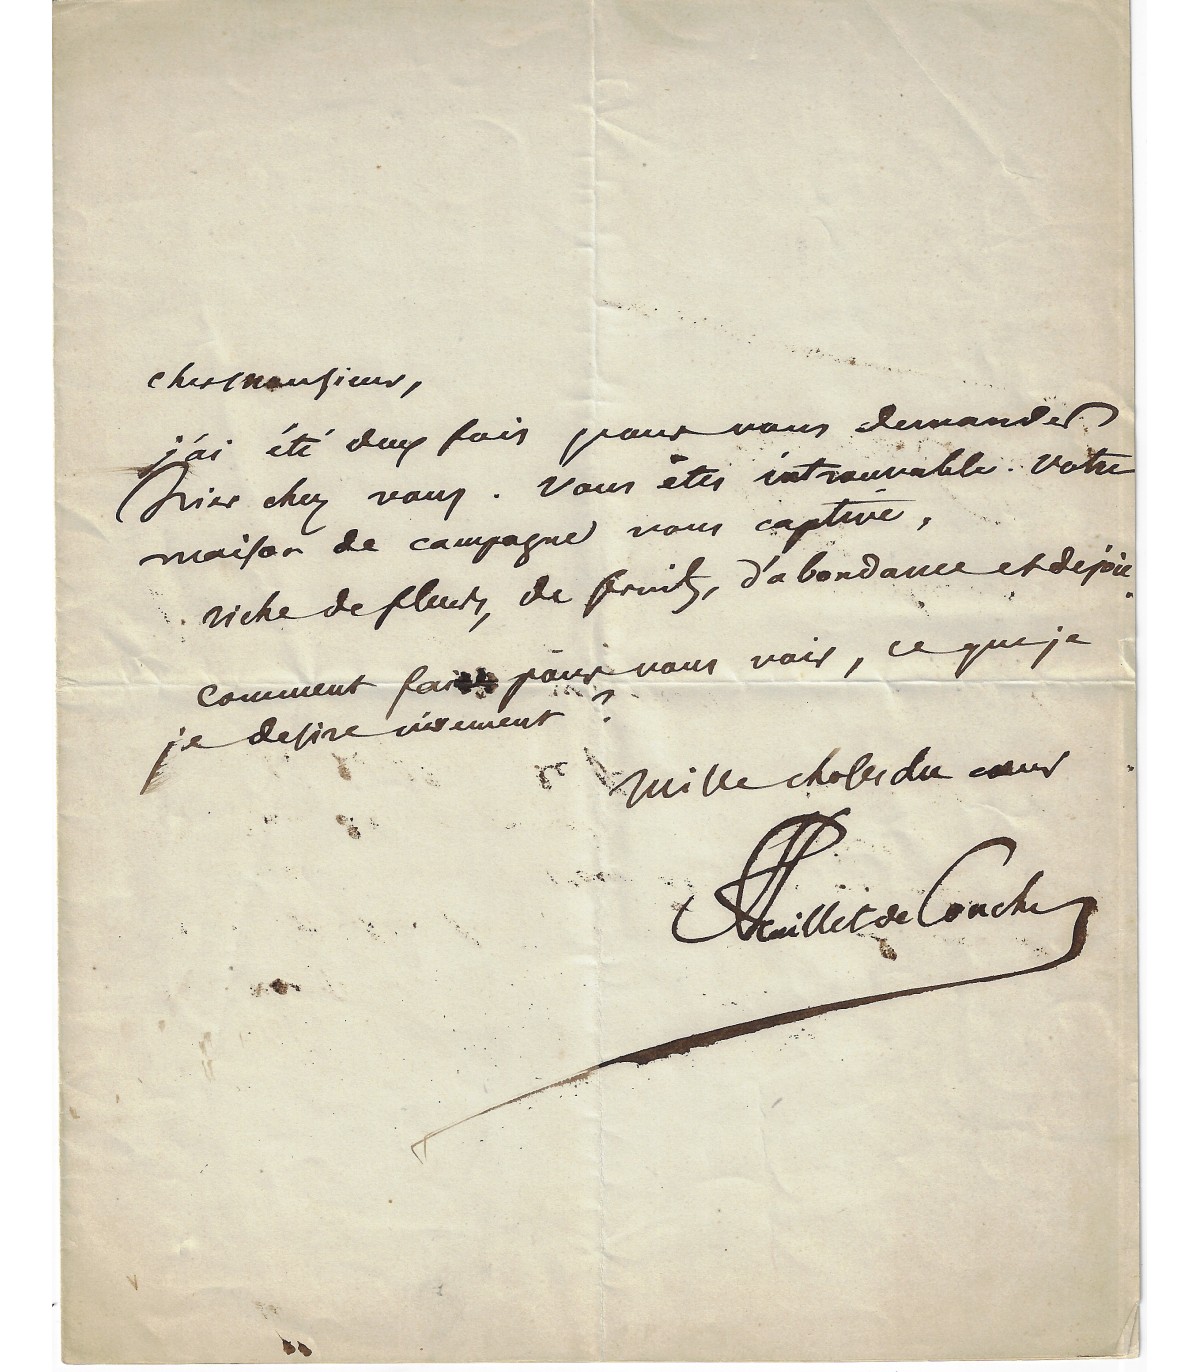 cher monsieur,
j'ai été deux fois pour vous demander
hier chez vous. Vous êtes introuvable. Votre
maison de campagne vous captive,
riche de fleurs, de fruits, d'abondance et de joie.
Comment faire pour vous voir, ce que je
je desire vivement ?
Mille choses du cœur
F Feuillet de Conches